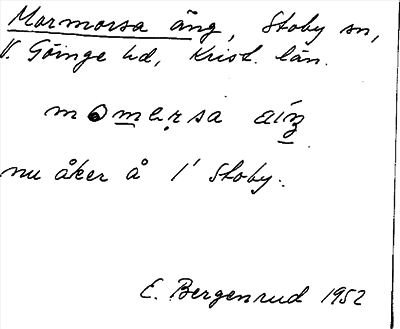 Mormorsa äng, Stoby sn,
V. Göinge hd, Krist. län.
nu åker å 1' Stoby.
E. Bergenrud 1952